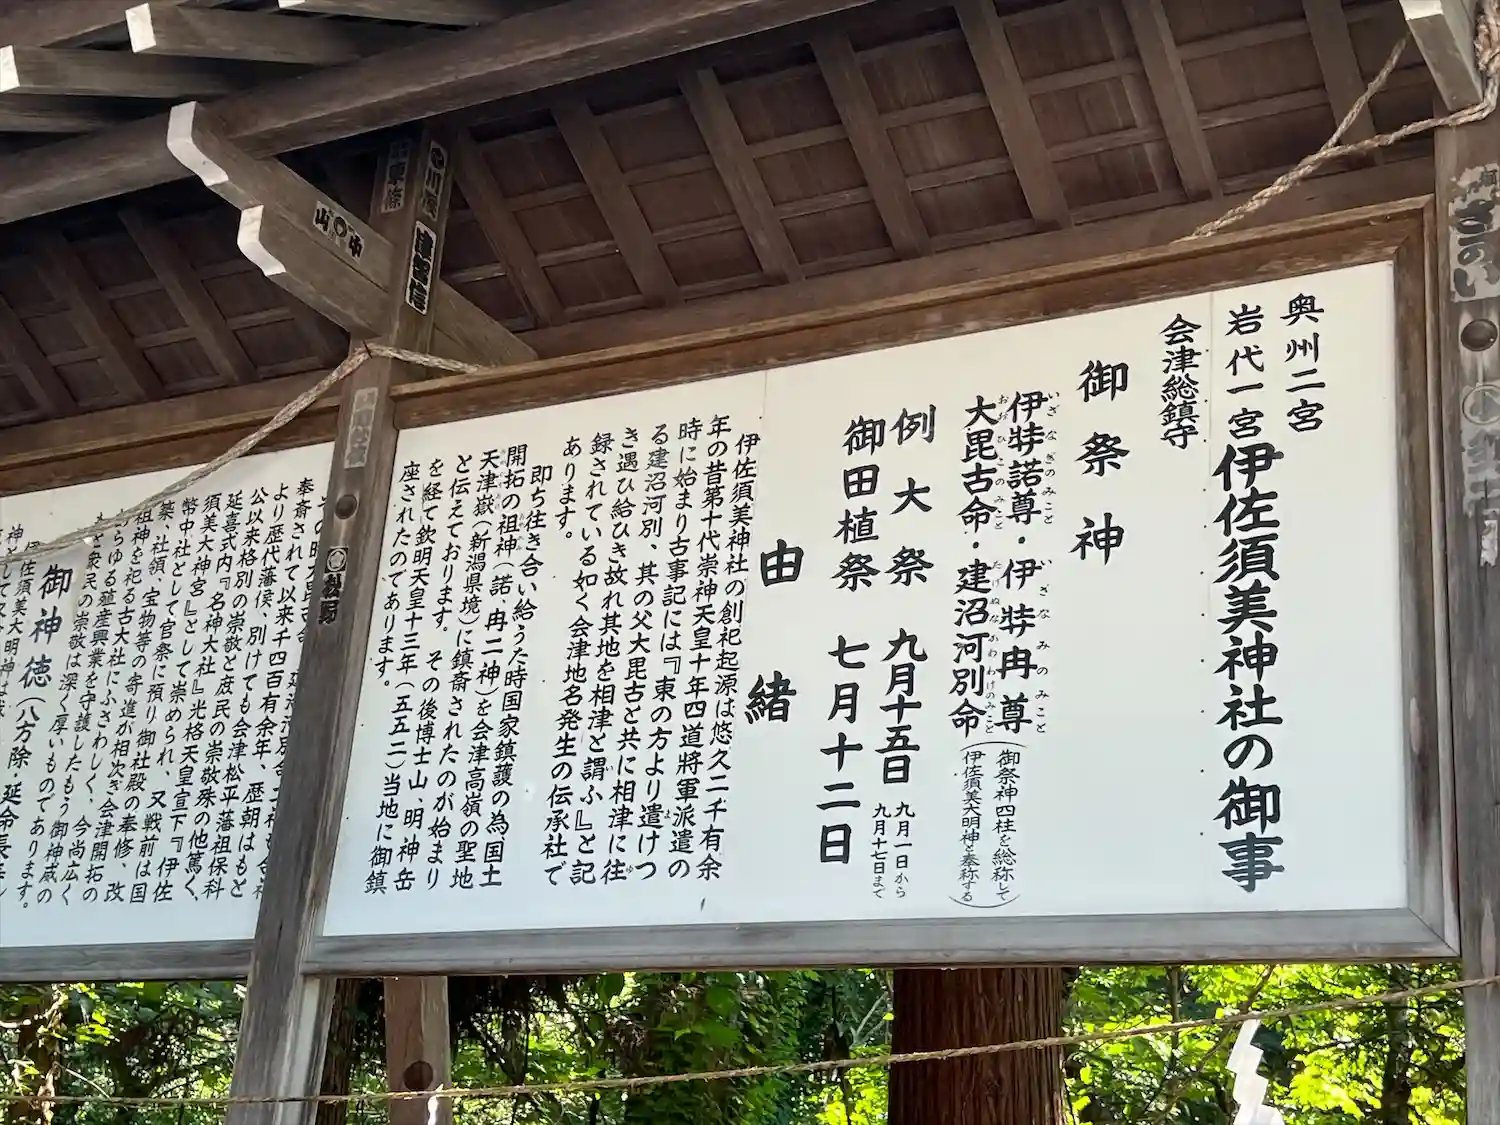 奥州二宮
岩代一宮
会津総鎮守
伊佐須美神社の御事
御祭神
伊弉諾尊・伊弉冉尊
いざなぎのみこと
いざなみのみこと
大毘古命・建沼河別命
おおひこのみこと
たけぬなかわわけのみこと
(御祭神四柱を総称して
伊佐須美大明神と奉称する)
例大祭 九月十五日
九月一日から
九月十七日まで
御田植祭 七月十二日
由緒
伊佐須美神社の創祀起源は悠久二千有余
年の昔第十代崇神天皇十年四道将軍派遣の
時に始まり古事記には『東の方より遣けつ
る建沼河別、其の父大毘古と共に相津に往
き遇ひ給ひき故れ其地を相津と謂ふ』と記
録されている如く会津地名発生の伝承社で
あります。
即ち往き合い給うた時国家鎮護の為国土
開拓の祖神(諾・冉二神)を会津高嶺の聖地
天津嶽(新潟県境)に鎮斎されたのが始まり
と伝えております。その後博士山、明神岳
を経て欽明天皇十三年(五五二)当地に御鎮
座されたのであります。
奉斎されて以来千四百有余年、歴朝はもと
より歴代藩侯、別けても会津松平藩祖保科
公以来格別の崇敬と庶民の崇敬殊の他篤く、
延喜式内『名神大社』光格天皇宣下『伊佐
須美大神宮』として崇められ、又戦前は国
幣中社として官祭に預り御社殿の奉修、改
築、社領、宝物等の寄進が相次ぎ会津開拓の
祖神を祀る古大社にふさわしく、今尚広く
らゆる殖産興業を守護したもう御神威の
と衆民の崇敬は深く厚いものであります。
御神徳(八方除・延命長寿
佐須美大明神は
松野